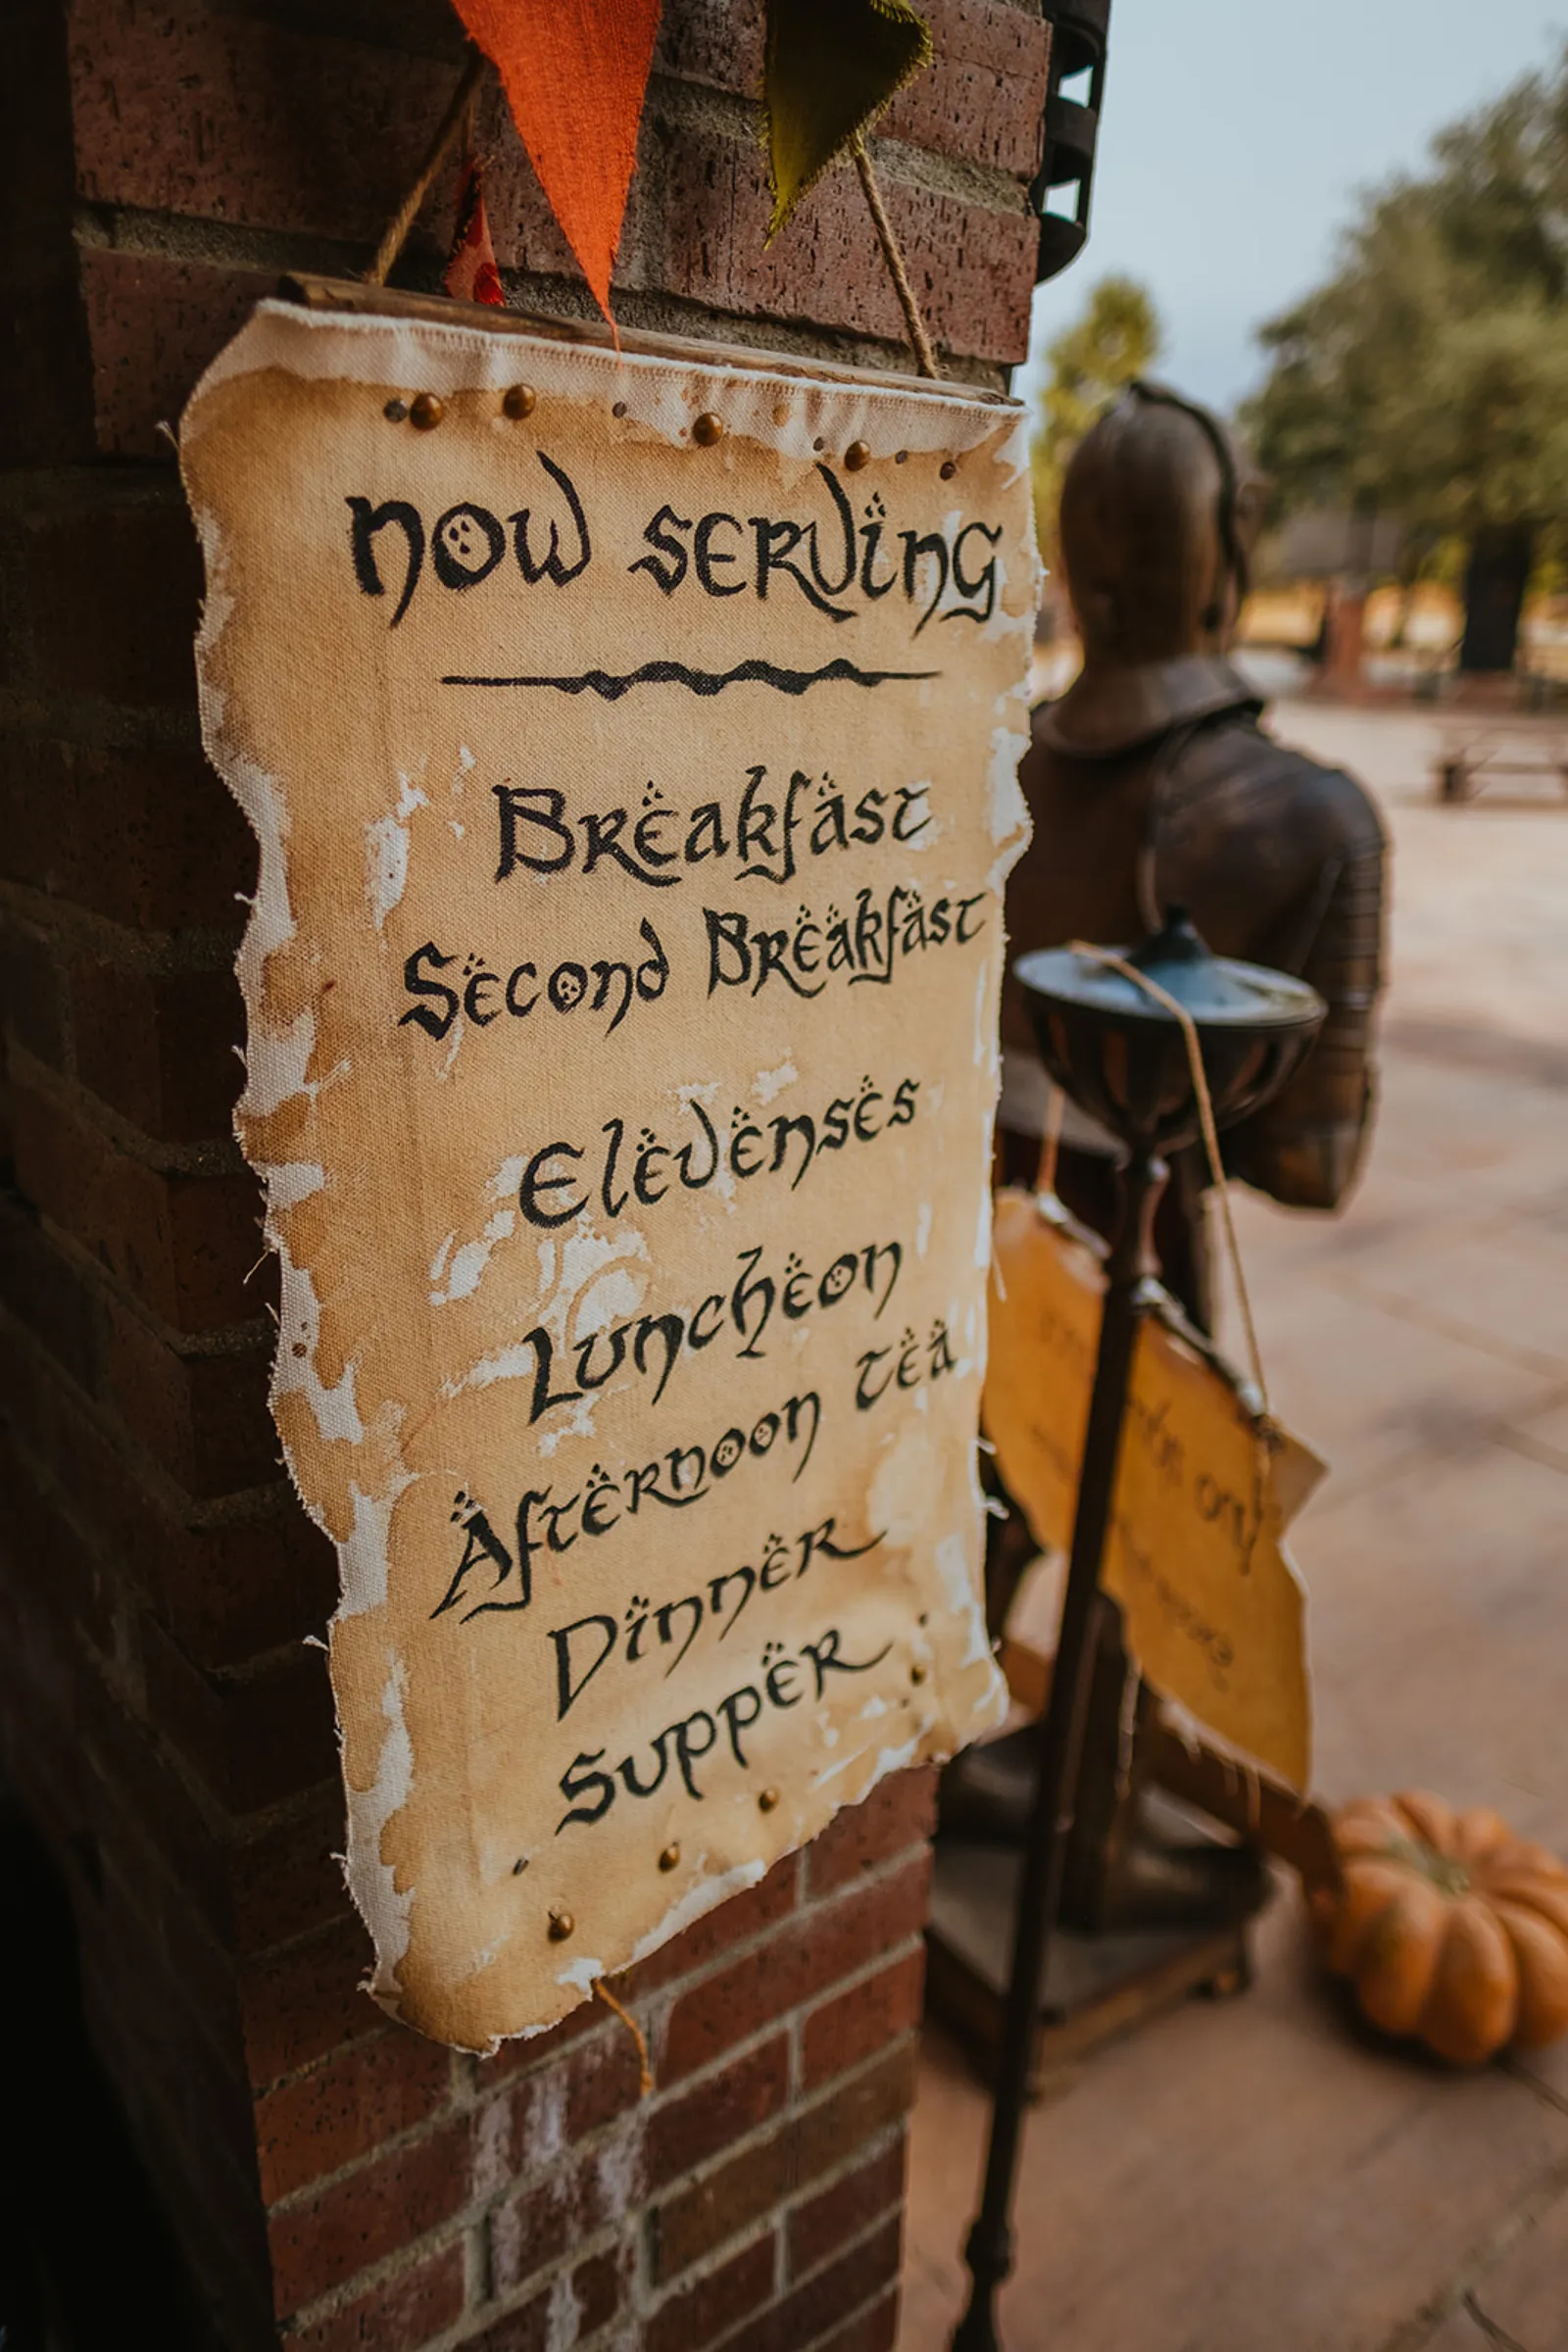 now serving
Breakfast
Second Breakfast
Elevenses
Luncheon
Afternoon Tea
Dinner
Supper